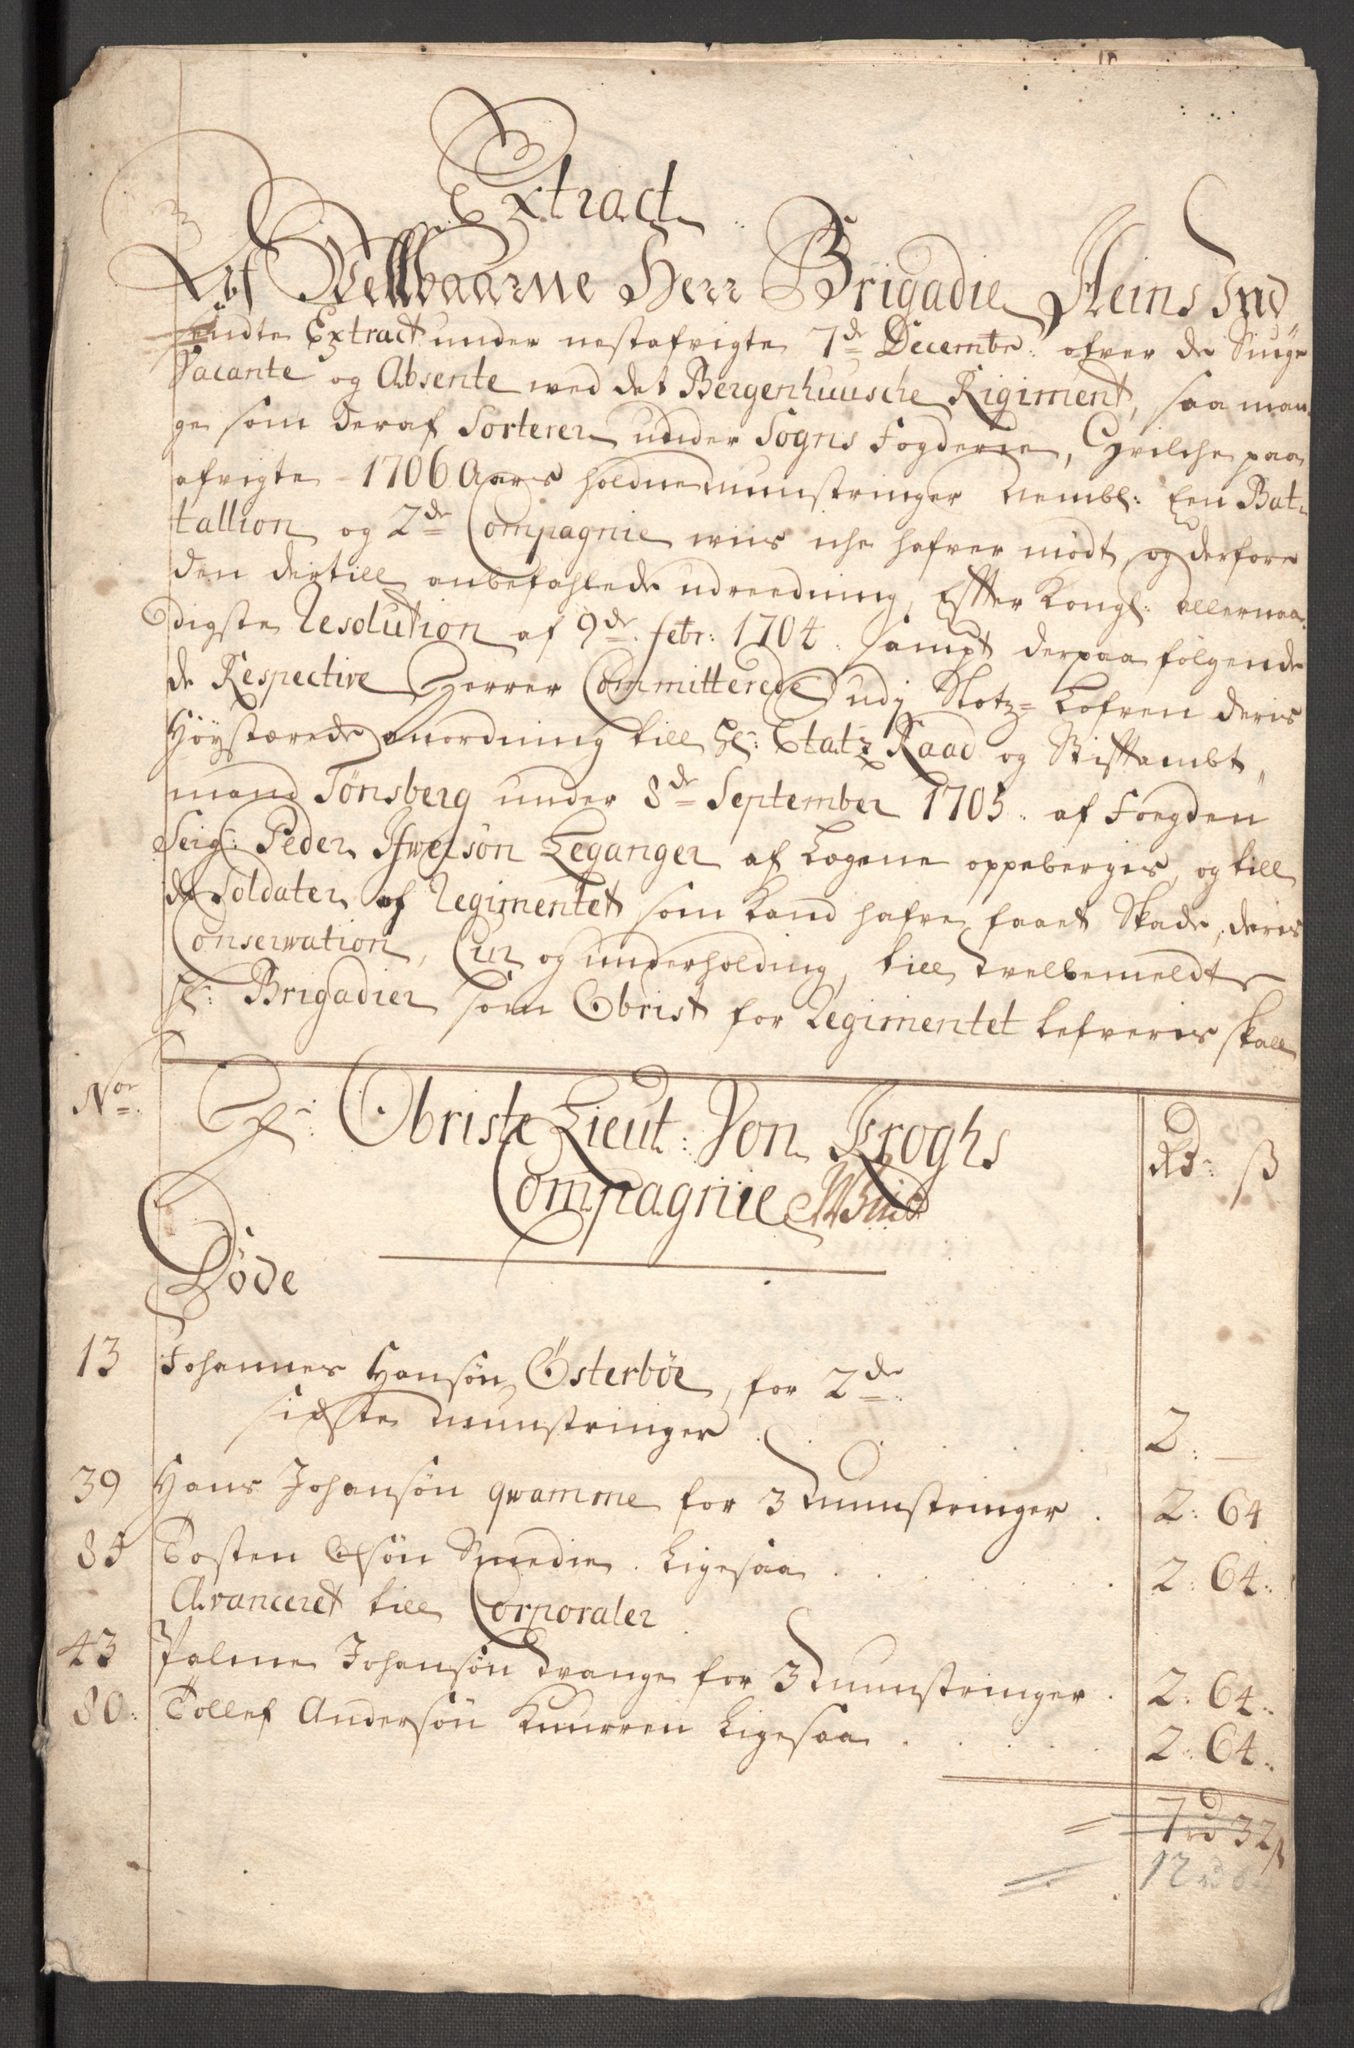 Extract
Af Velbaarne Herr Brigadie Heins Ind
sendte Extract under nestafvigte 7de Decembr: ofver de Siuge
Vacante og Absente wed det Bergenhuusche Rigiment, saa man
ge som deraf Sorterer under Sogns Fogderie, Hvilche paa
afvigte 1706 Aars holdne munstringer Nembl: Een Bat-
tallion og 2de Compagnie wiis iche hafver mødt, og derfore
den dertill anbefahlede udreedning, Effter Kongl: allernaa
digste Resolution af 9de febr: 1704. sampt derpaa følgende
de Respective Herrer Committerede udj Slotz-Lofven deris
Höystærede anordning till Hr: Etatz Raad og Stiftambt,,
mand Tønsberg under 8de September 1705. af Foegden
Seigr: Peder Ifwersøn Leganger af Lægene oppebergis, og till
de Soldater af Regimentet som kand hafve faaet Skade, deris
Conservation, Cur og underholding, till velbemeldte
Hr: Brigadier som Obrist for Regimentet lefveris skall
Nor
Hr: Obriste Lieut: Von Kroghs
Rd: ß
Compagnie
Døde
13 Johannes Hansøn Østerbøe, for 2de
sidste munstringer . . . . 2: —
39 Hans Johansøn qwamme for 3 munstringer . 2: 64
85 Tosten Olsøn Smedie . Ligesaa . . . . 2: 64:
Avanceret till Corporaler
43 Palme Johansøn Trange for 3 munstringer . 2: 64:
80: Tollef Andersøn Knurren Ligesaa . . . . 2: 64:
7 rd 32 ß
12 rd 64